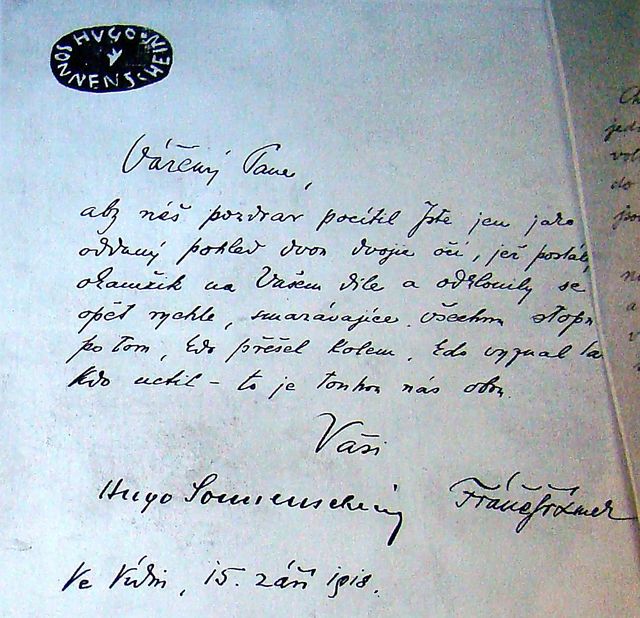 HUGO SONNENSCHEIN
Vážený Pane,
aby náš pozdrav pocítil Jste jen jako
oddaný pohled dvou dvojic očí, jež postály
okamžik na Vašem díle a odklonily se
opět rychle, smazávajíce všechnu stopu
po tom, kdo přešel kolem, kdo vyznal
kdo uctil – to je touhou nás obou.
Váši
Hugo Sonnenschein
Ve Vídni, 15. září 1918.